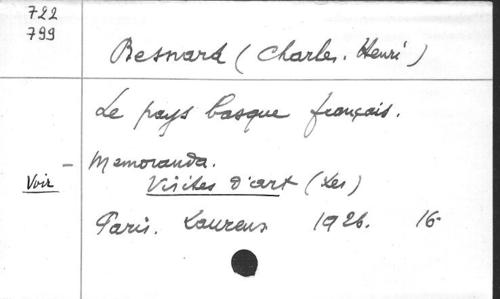 722
799
Besnard (Charles-Henri)
Le pays basque français.
– Memoranda.
Voir Visites d'art (Les)
Paris. Laurens 1926. 16-